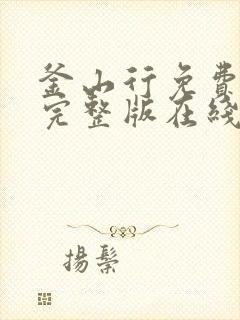 釜山行免費
完整版在綫
揚鬃